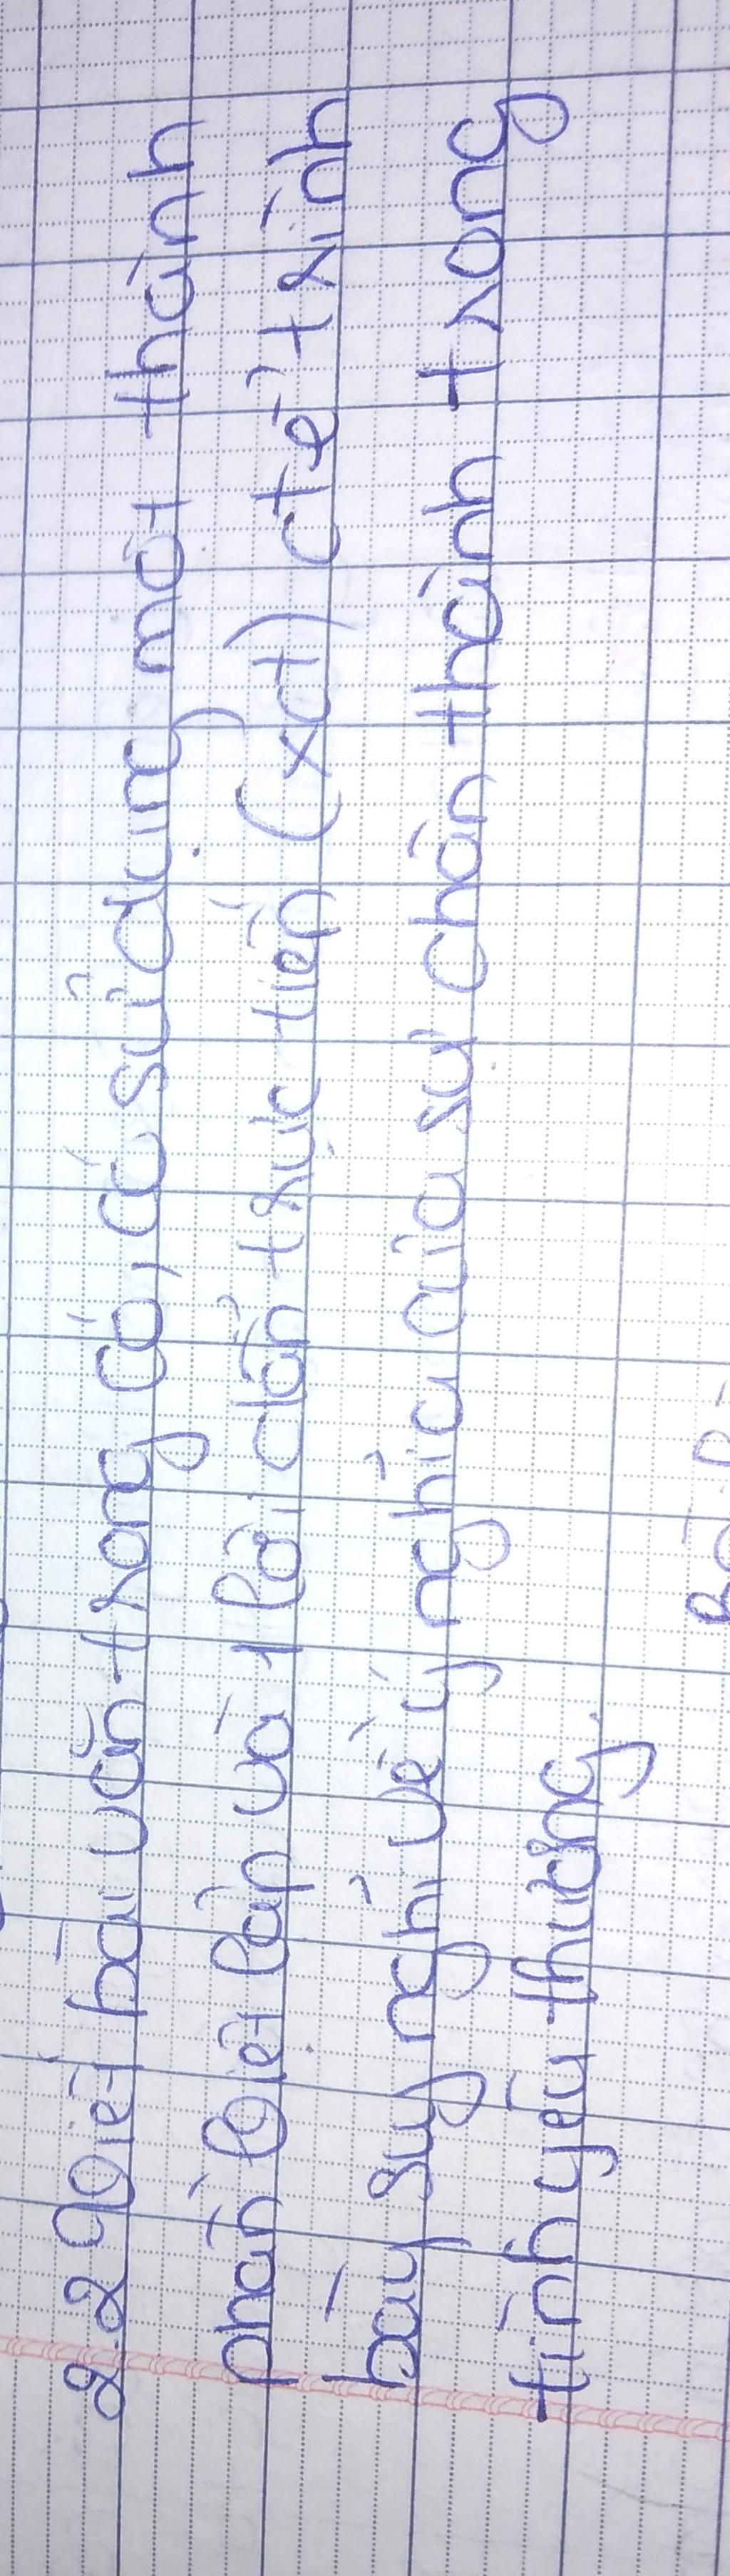 2.2 Viết bài văn trong đó, có sử dụng một thành
phần biệt lập và 1 lời dẫn trực tiếp (xđ) để trình
bày suy nghĩ về ý nghĩa của sự chân thành trong
tình yêu thương.